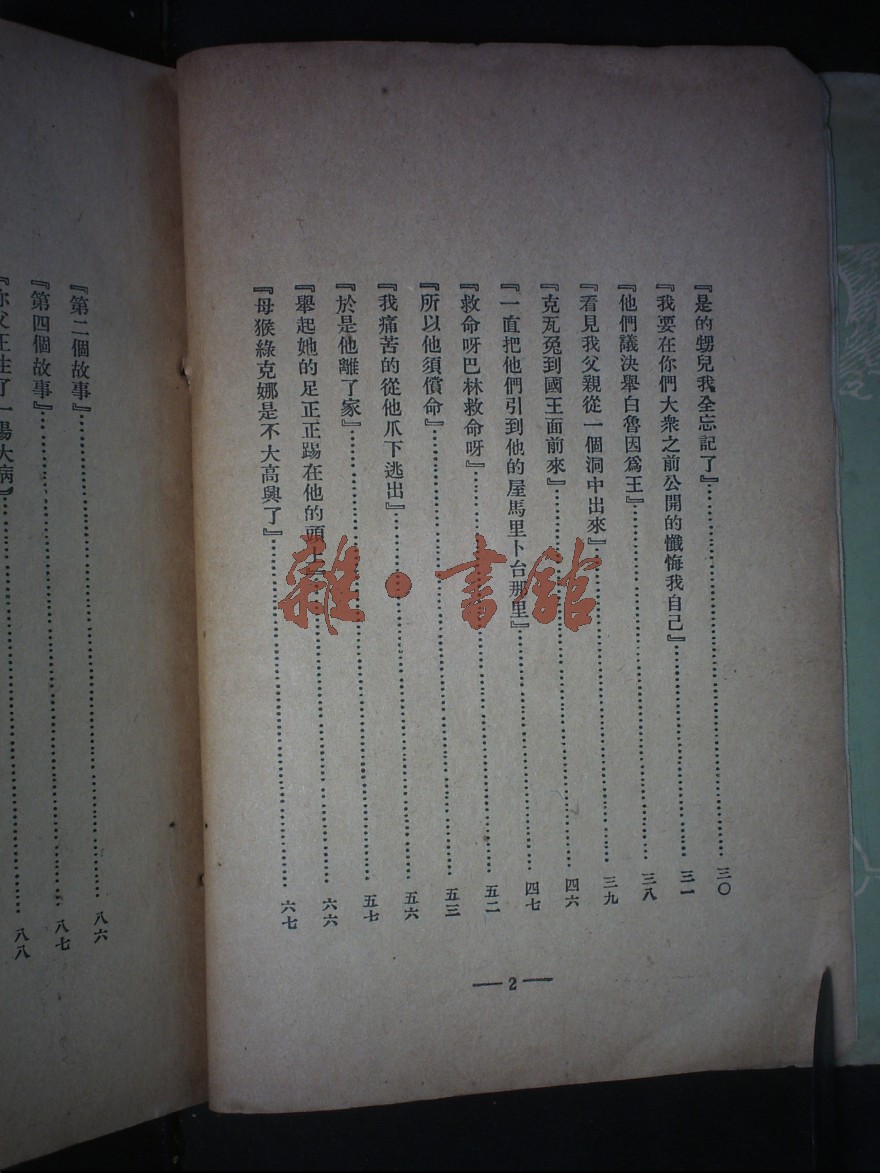 『是的甥兒我全忘記了』……三〇
『我要在你們大衆之前公開的懺悔我自己』……三一
『他們議決舉白魯因爲王』……三八
『看見我父親從一個洞中出來』……三九
『克瓦兔到國王面前來』……四六
『一直把他們引到他的屋馬里卜台那里』……四七
『救命呀巴林救命呀』……五二
『所以他須償命』……五三
『我痛苦的從他爪下逃出』……五六
『於是他離了家』……五七
『舉起她的足正正踢在他的頭上……六六
『母猴綠克娜是不大高興了』……六七
— 2 —
『第二個故事』……八六
『第四個故事』……八七
父王生了一場大病』……八八
雜·書館